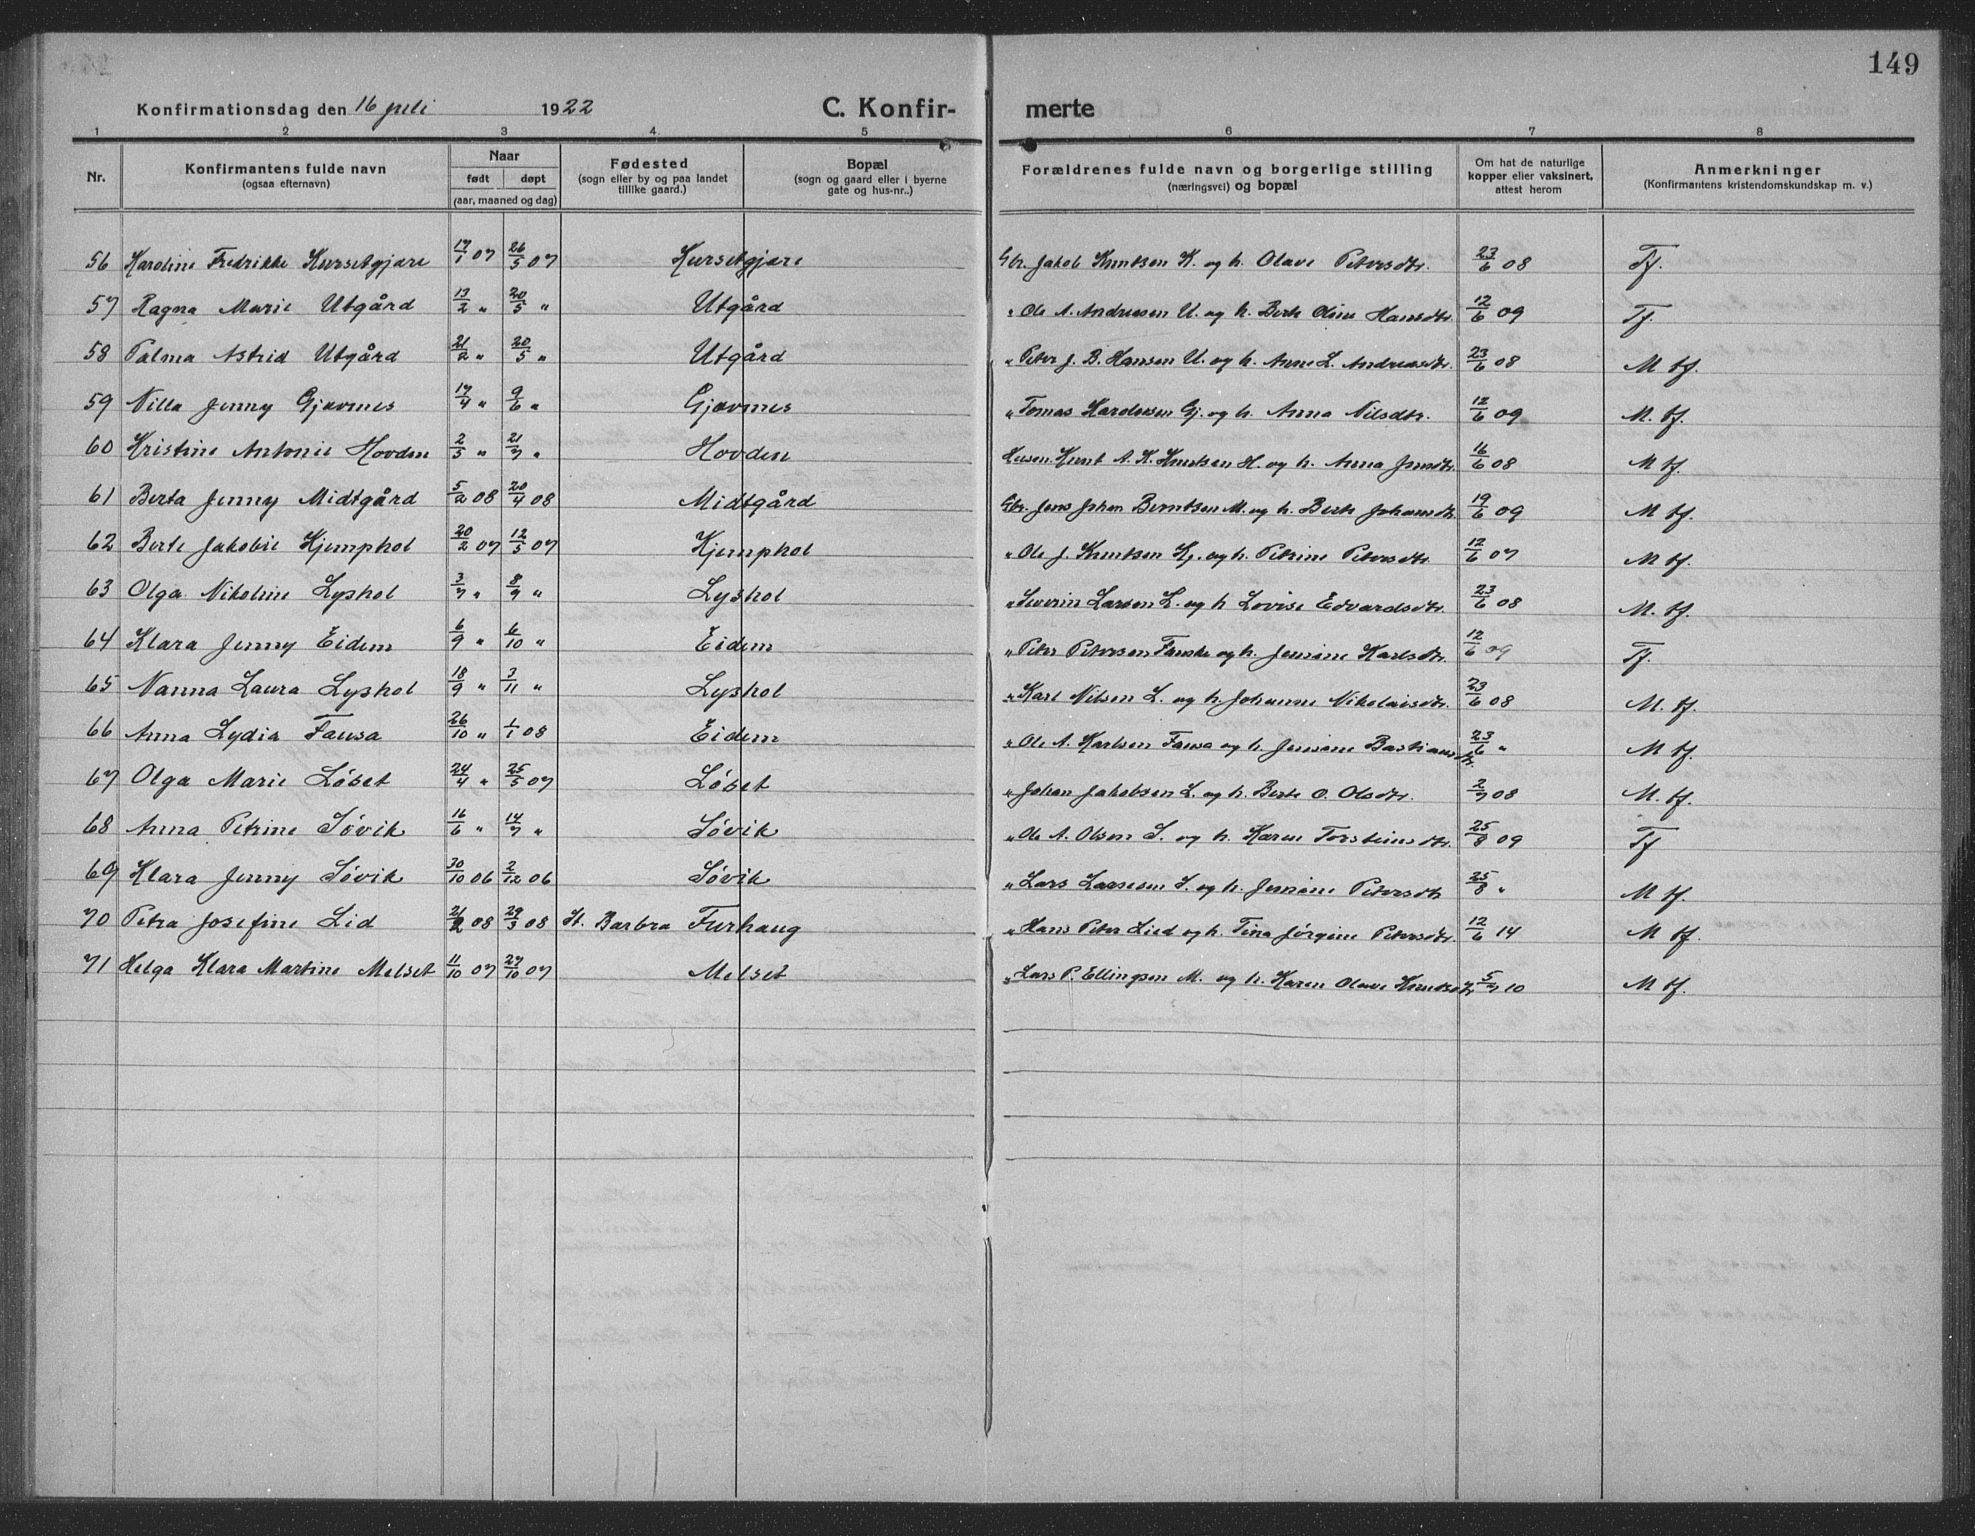 149
Konfirmationsdag den 16 juli 1922 C. Konfir- merte
1 2 3 4 5 6 7 8
Nr. Konfirmantens fulde navn (ogsaa efternavn) Naar født døpt (aar, maaned og dag) Fødested (sogn eller by og paa landet tillike gaard.) Bopæl (sogn og gaard eller i byerne gate og hus-nr..) Forældrenes fulde navn og borgerlige stilling (næringsvei) og bopæl Om hat de naturlige kopper eller vaksinert, attest herom Anmerkninger (Konfirmantens kristendomskundskap m. v.)
56 Karoline Fredrikke Hursetgjære 17/1 07 26/5 07 Hursetgjære Gbr. Jakob Knutsen H. og h. Olave Petersdtr. 23/6 08 Tf.
57 Ragna Marie Utgård 13/2 " 20/5 " Utgård " Ole A. Andreasen U. og h. Berte Oline Hansdtr. 12/6 09 Tf.
58 Palma Astrid Utgård 21/2 " 20/5 " Utgård " Peter J. B. Hansen U. og h. Anne L. Andreasdtr. 23/6 08 M tf.
59 Nilla Jenny Gjævnes 17/4 " 9/6 " Gjævnes " Tomas Hardersen Gj. og h. Anna Nilsdtr. 12/6 09 M. tf.
60 Kristine Antonie Hovden 2/5 " 21/7 " Hovden Knut A. K. Knutsen H. og h. Anna Jensdtr. 16/6 08 M tf.
61 Berta Jenny Midtgård 5/2 08 20/4 08 Midtgård Gbr. Jens Johan Berntsen M. og h. Berte Johansdtr. 19/6 09 M tf.
62 Berte Jakobie Kjemphol 20/2 07 12/5 07 Kjemphol " Ole J. Knutsen Kj. og h. Petrine Petersdtr. 12/6 07 M tf.
63 Olga Nikoline Lyshol 3/7 " 8/9 " Lyshol " Severin Larsen L. og h. Lovise Edvardsdtr. 23/6 08 M. tf.
64 Klara Jenny Eidem 6/9 " 6/10 " Eidem " Peter Petersen og h. Jensine Karlsdtr. 12/6 09 Tf.
65 Nanna Laura Lyshol 18/9 " 3/11 " Lyshol " Karl Nilsen L. og h. Johanne Nikolaisdtr. 23/6 08 M. tf.
66 Anna Lydia Fausa 26/10 " 1/1 08 Eidem " Ole A. Karlsen Fausa og h. Jensine Bastiansdtr. 23/6 " M tf.
67 Olga Marie Løset 24/4 " 25/5 07 Løset " Johan Jakobsen L. og h. Berte O. Olsdtr. 2/7 08 M. tf.
68 Anna Petrine Søvik 16/6 " 14/7 " Søvik " Ole A. Olsen S. og h. Karen Torsteinsdtr. 25/8 09 Tf
69 Klara Jenny Søvik 30/10 06 2/12 06 Søvik " Lars Larsesen S. og h. Jensine Petersdtr 25/8 " M tf.
70 Petra Josefine Lid 21/2 08 29/3 08 St. Barbra Furhaug " Hans Peter Lied og h. Tina Jørgine Petersdtr. 12/6 14 M tf.
71 Helga Klara Martine Melset 11/10 07 27/10 07 Melset " Lars P. Ellingsen M. og h. Karen Olave Knutsdtr 5/7 10 M tf.